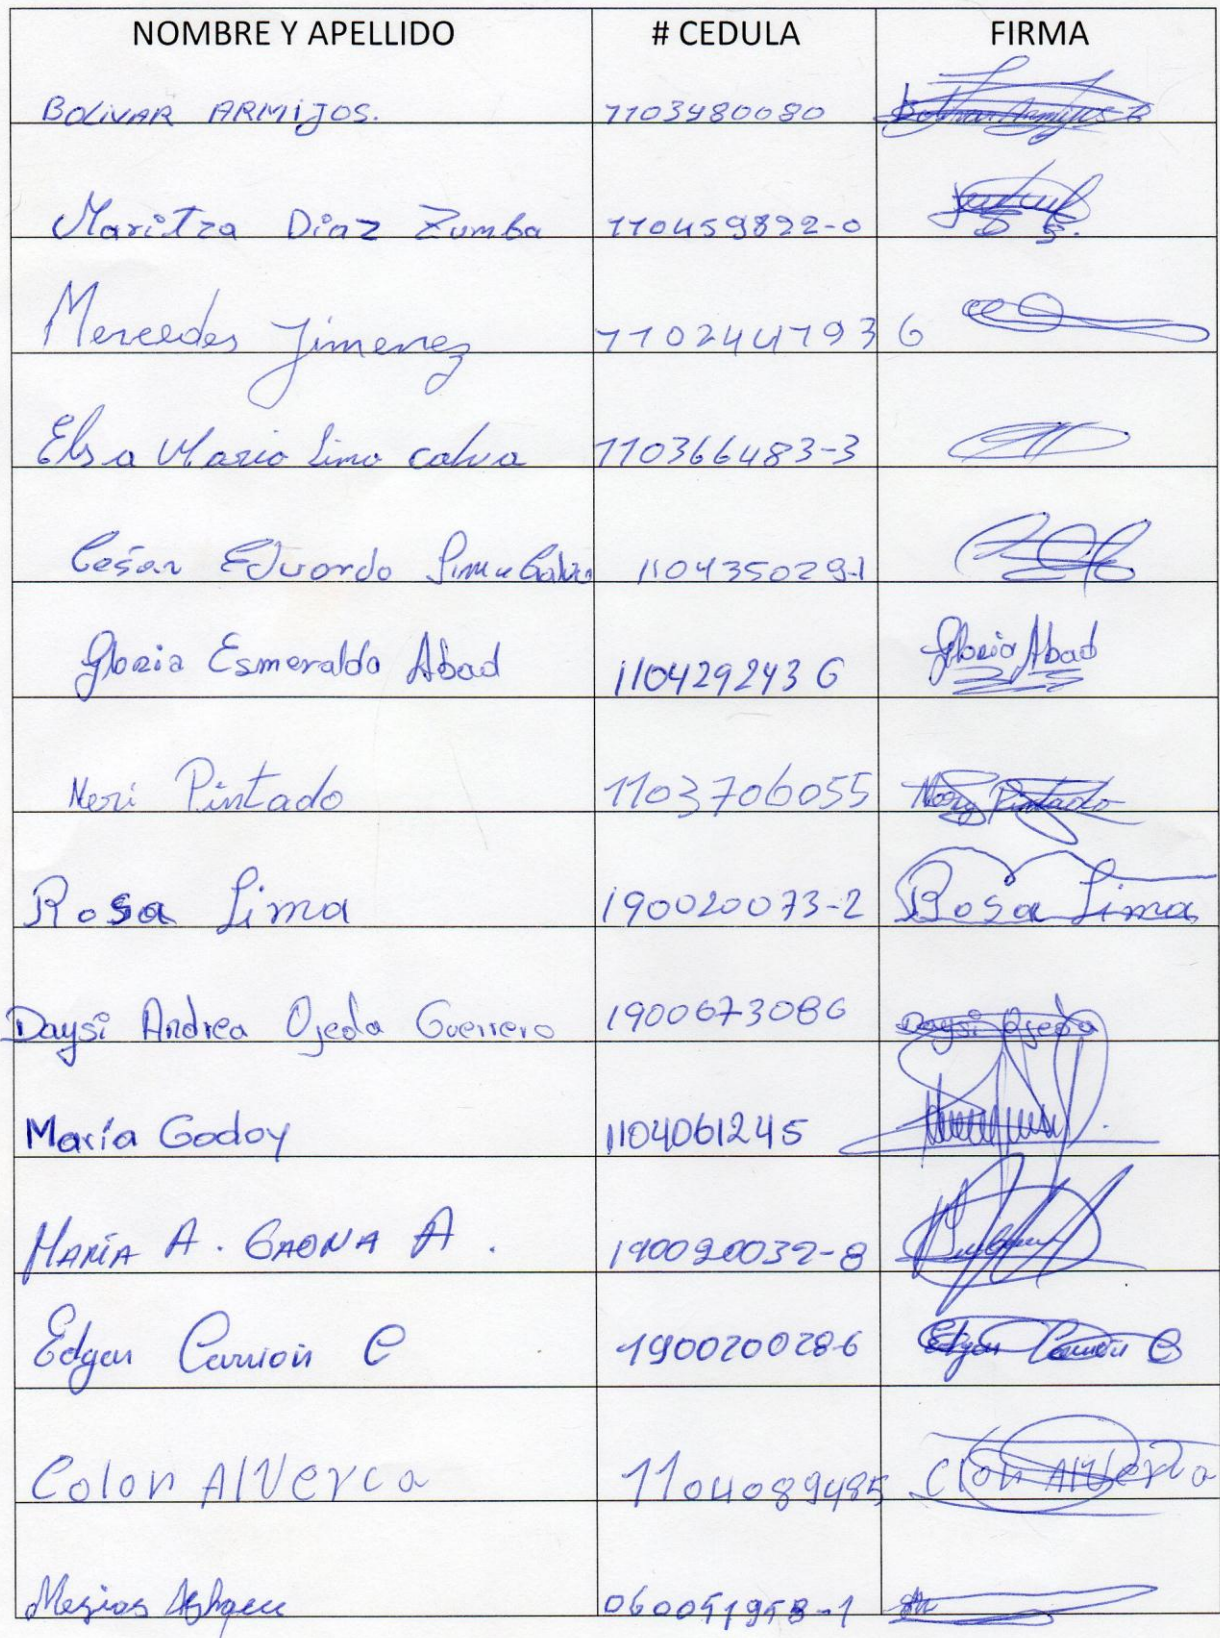 NOMBRE Y APELLIDO # CEDULA FIRMA
BOLIVAR ARMIJOS. 1103480080 Bolivar Armijos B
Maritza Diaz Zumba 110459822-0
Mercedes Jimenez 1102441793 6
Elsa Maria Lima calva 110366483-3
César Eduardo Lima Calva 110435029-1
Gloria Esmeralda Abad 1104292436 Gloria Abad
Neri Pintado 1103706055 Nery Pintado
Rosa Lima 190020073-2 Rosa Lima
Daysi Andrea Ojeda Guerrero 1900673086 Daysi Ojeda
María Godoy 1104061245
MARÍA A. GAONA A. 190020032-8
Edgar Carrión C 1900200286 Edgar Carrión C
Colon Alverca 1104089485 Clon Alverca
Mesias 060051958-1